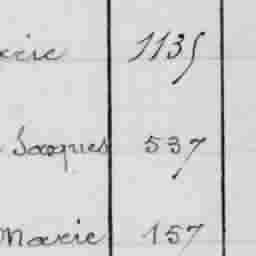 1135
Jacques 537
Marie 157